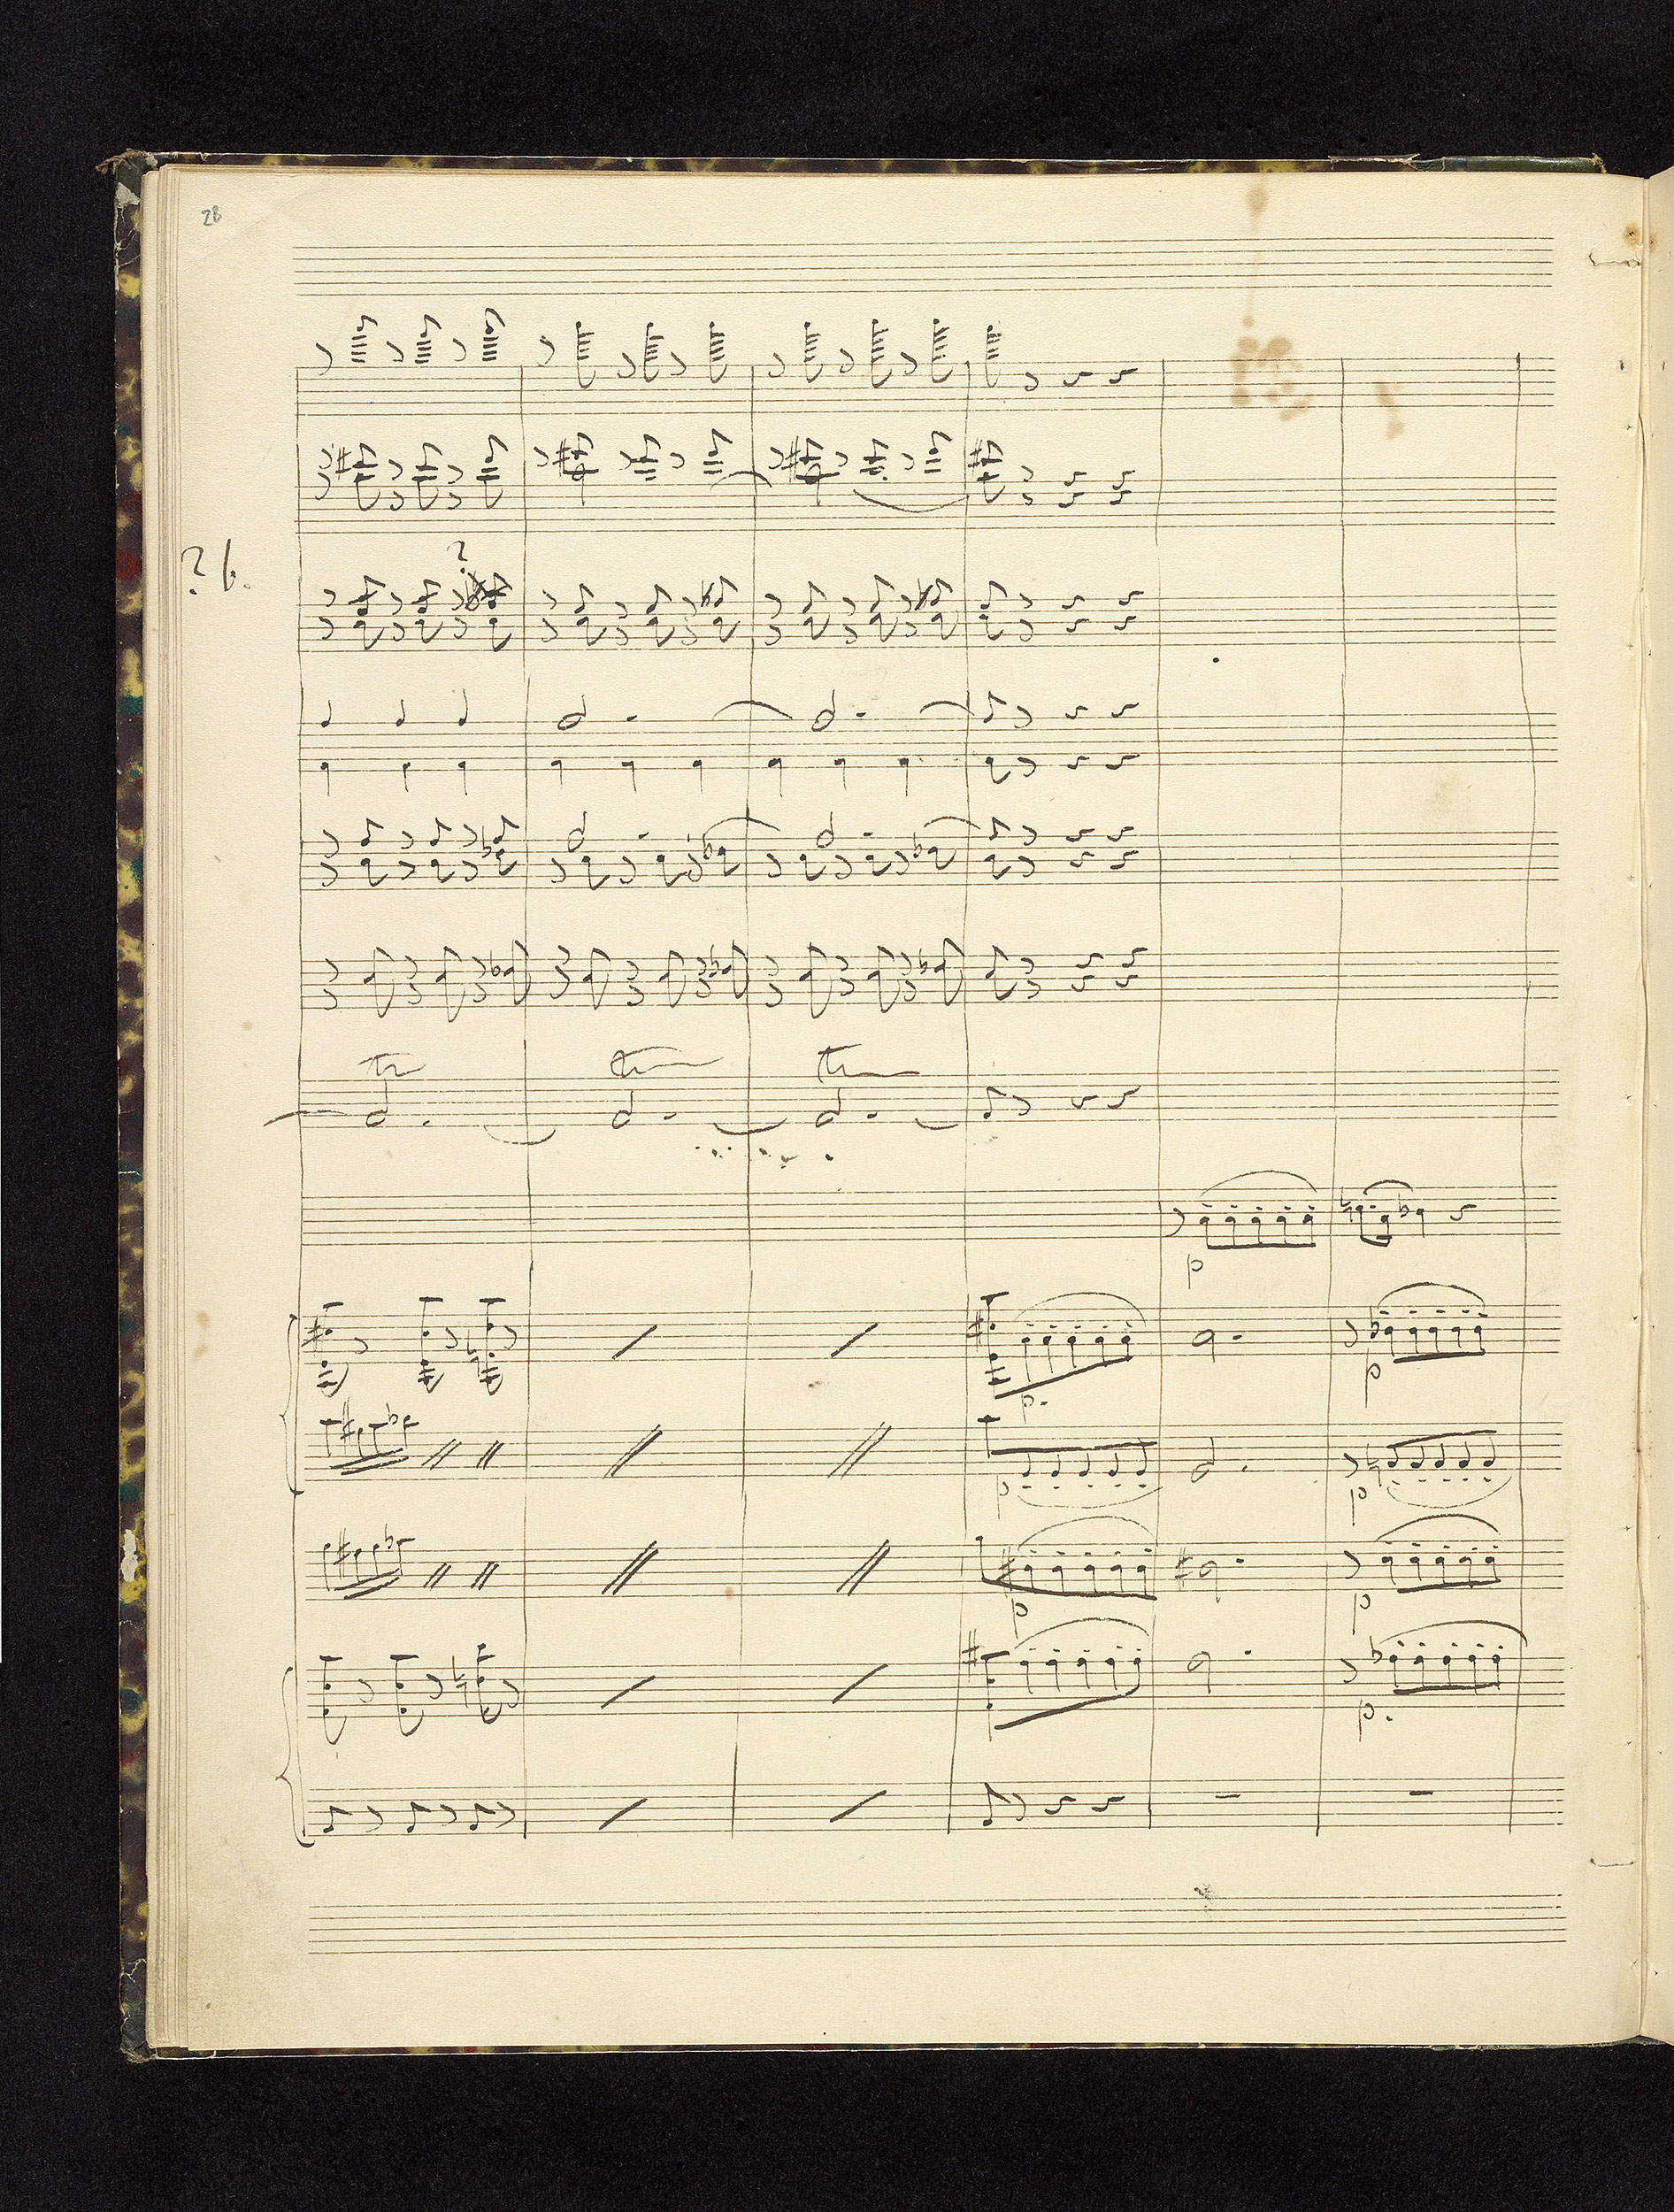 28
?
? b.
tr tr tr
p
p
p.
p p
p p
p.